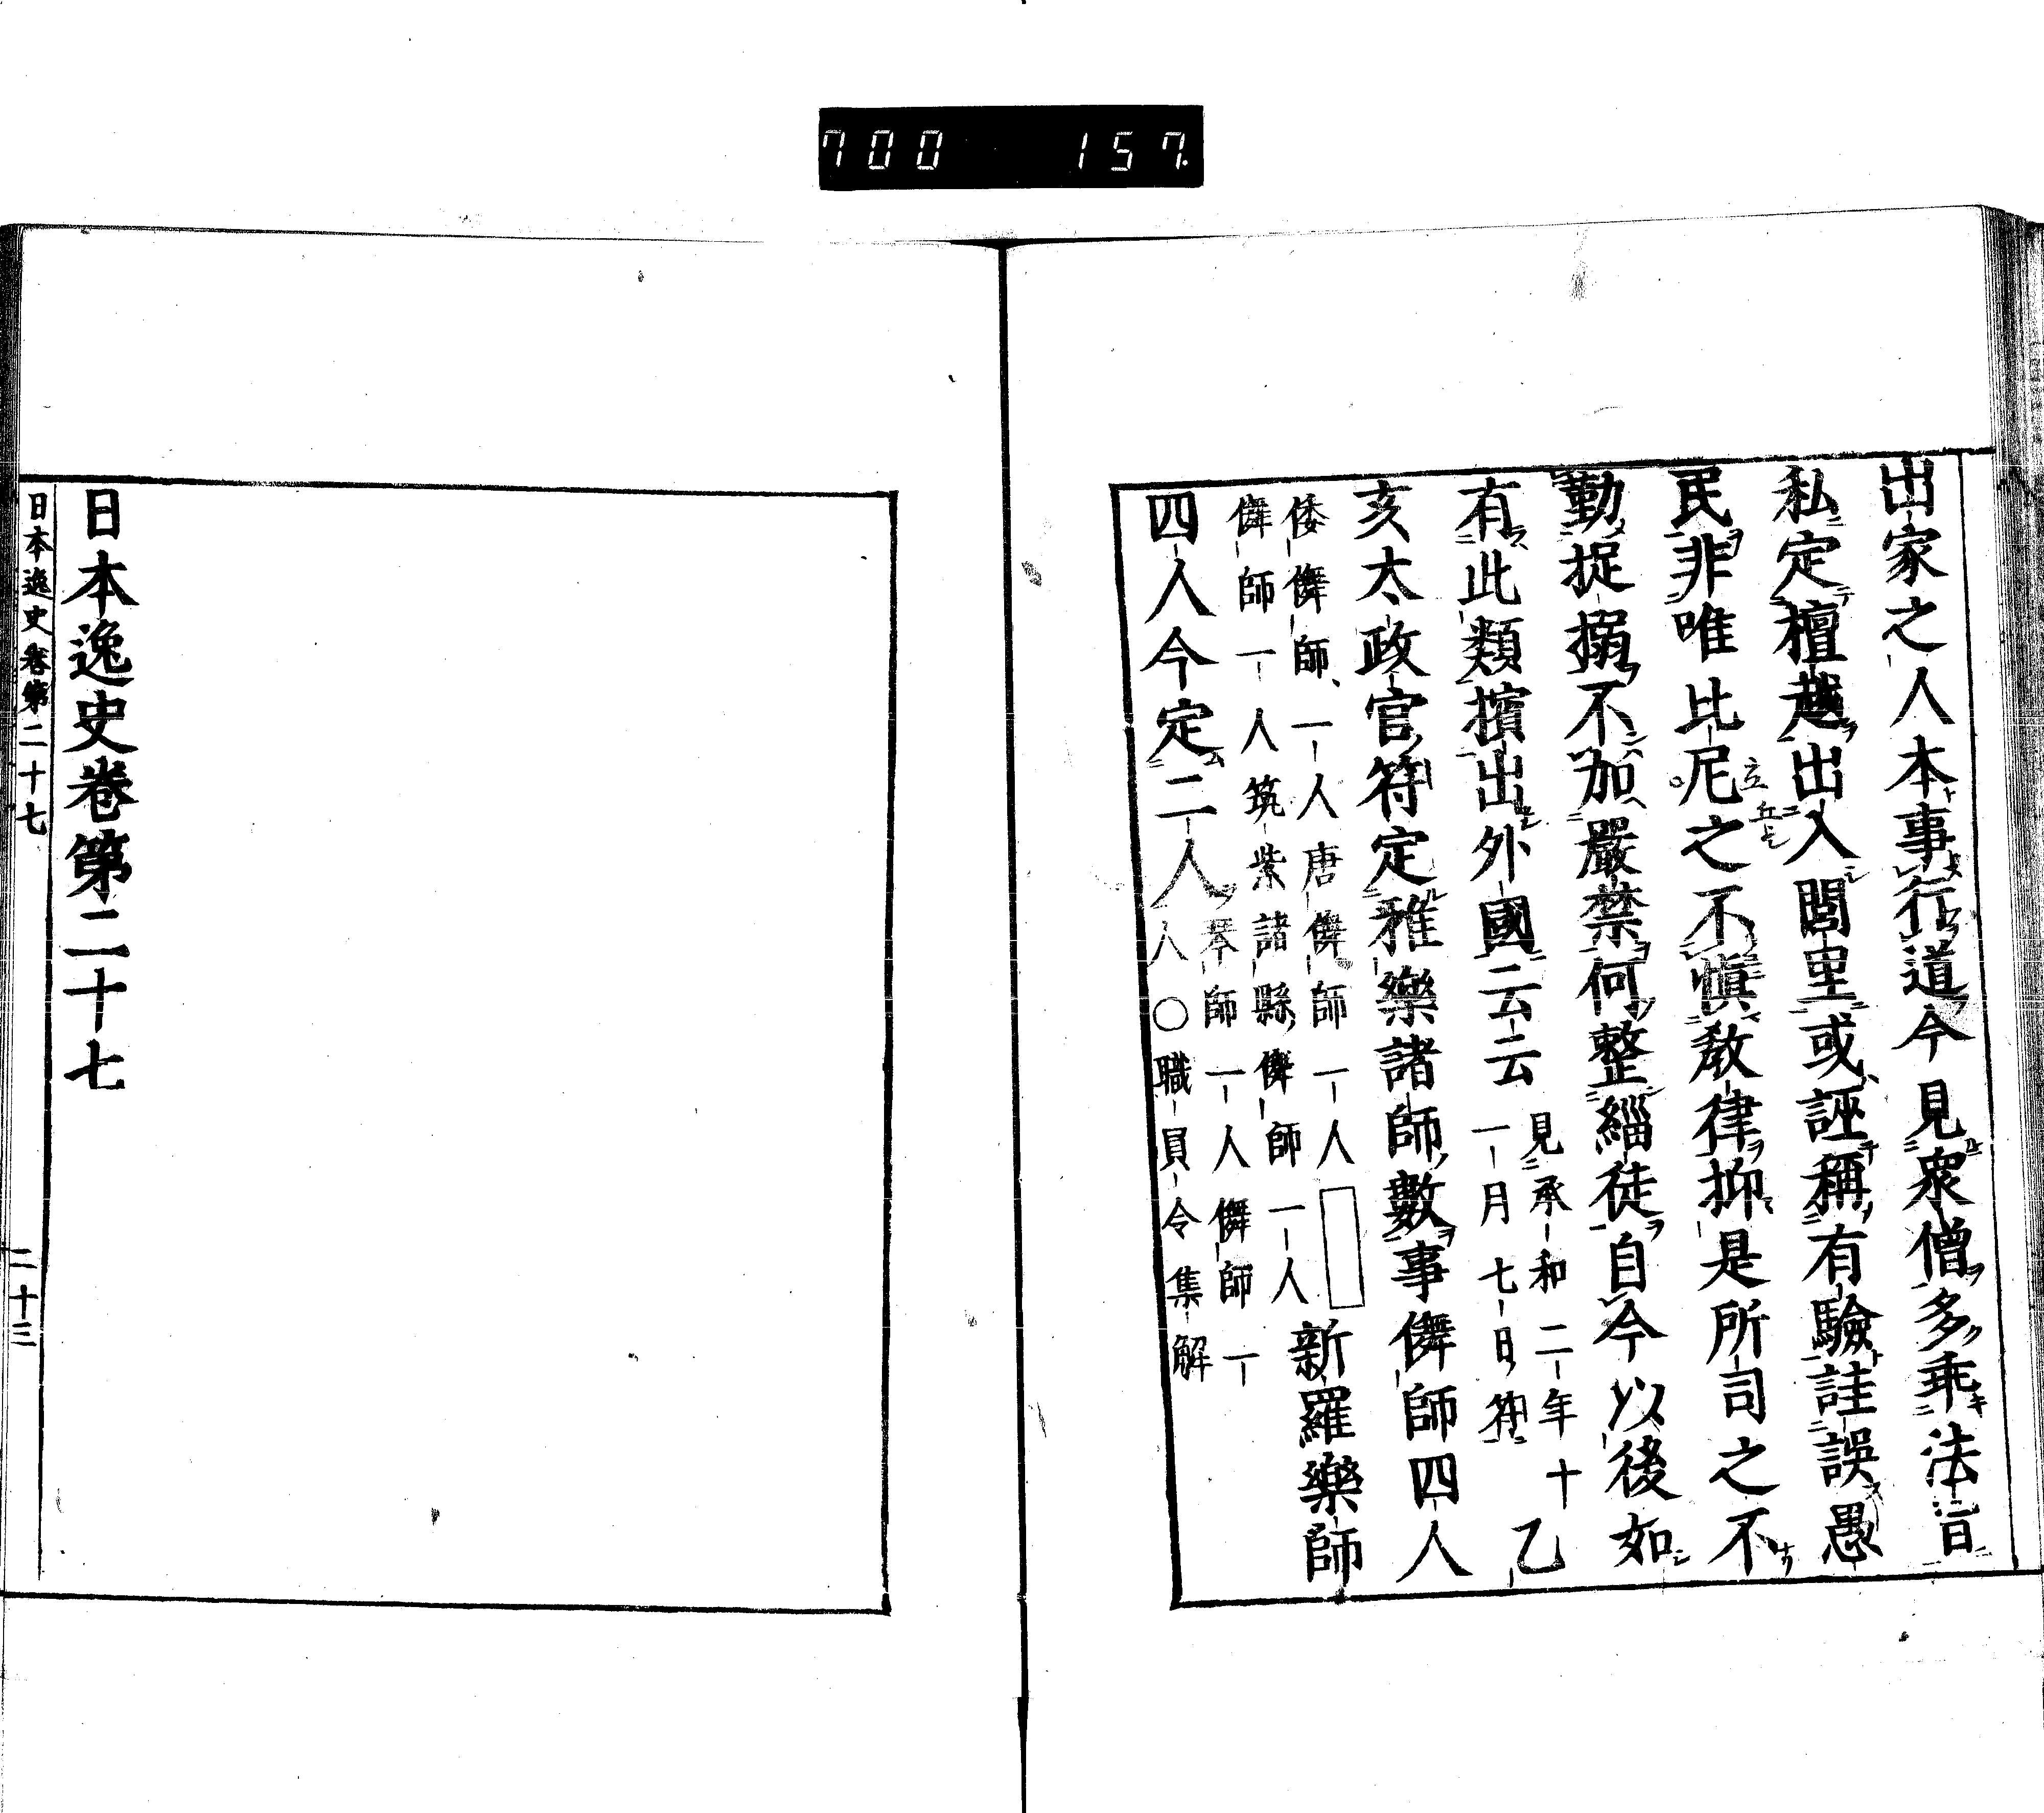 700 157
出家之人本事行道今見衆僧多乖法旨
私定檀越出入閭里或誣稱有驗詿誤愚
民非唯比尼之不愼教律抑是所司之不
勤捉搦不加嚴禁何整緇徒自今以後如
有此類擯出外國云云
見承和二年十
一月七日符
乙
亥太政官符定雅樂諸師數事儛師四人
倭儛師一人唐儛師一人
儛師一人筑紫諸縣儛師一人
新羅樂師
四人今定二人
琴師一人儛師一
人○職員令集解
日本逸史卷第二十七
日本逸史卷第二十七 二十三